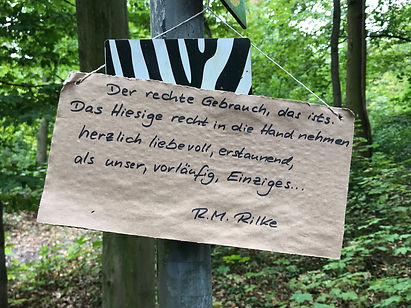 Der rechte Gebrauch, das ists.
Das Hiesige recht in die Hand nehmen
herzlich liebevoll, erstaunend,
als unser, vorläufig, Einziges...
R.M. Rilke